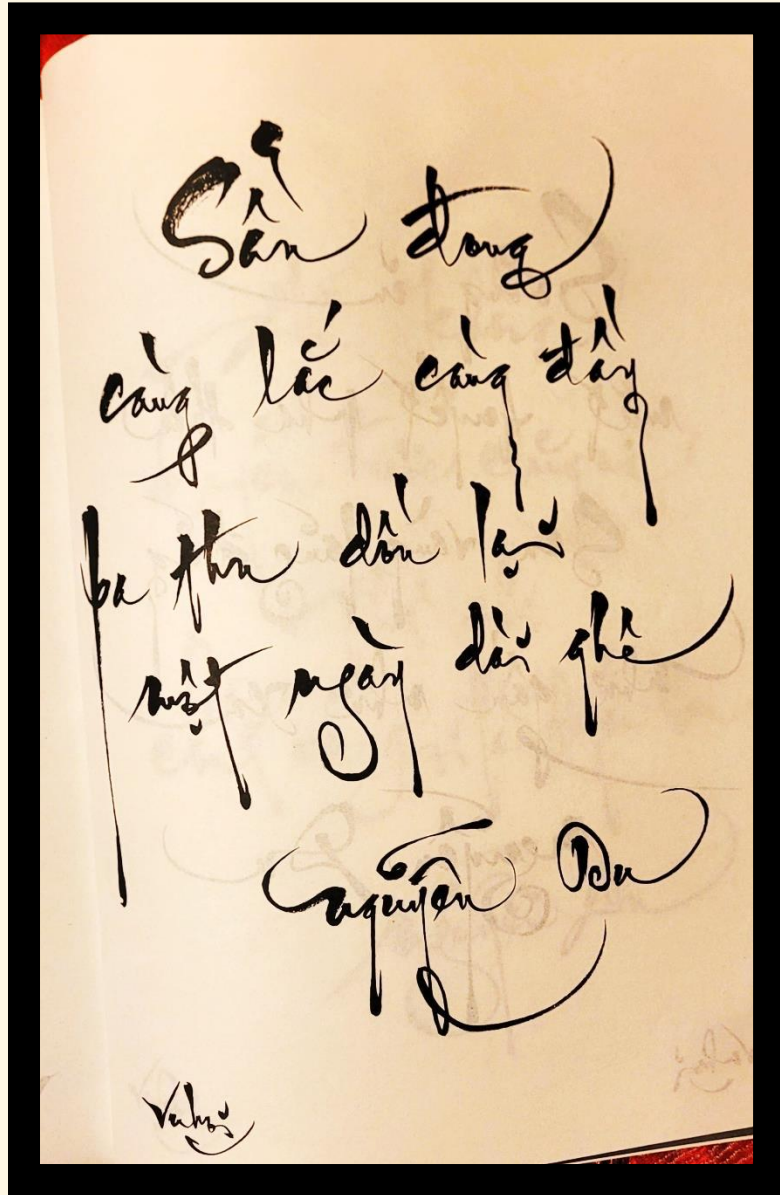 Sầu đong
càng lắc càng đầy
ba thu dồn lại
một ngày dài ghê
Nguyễn Du
Vũhối